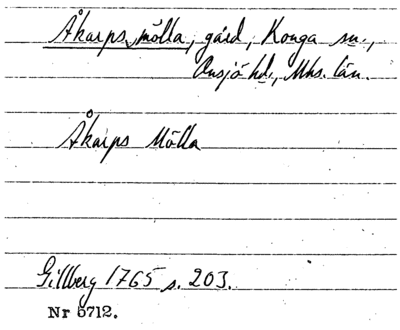 Åkarps mölla, gård, Konga sn.,
Onsjö hd., Mhs. län.
Åkarps Mölla
Gillberg 1765 s. 203.
Nr 5712.